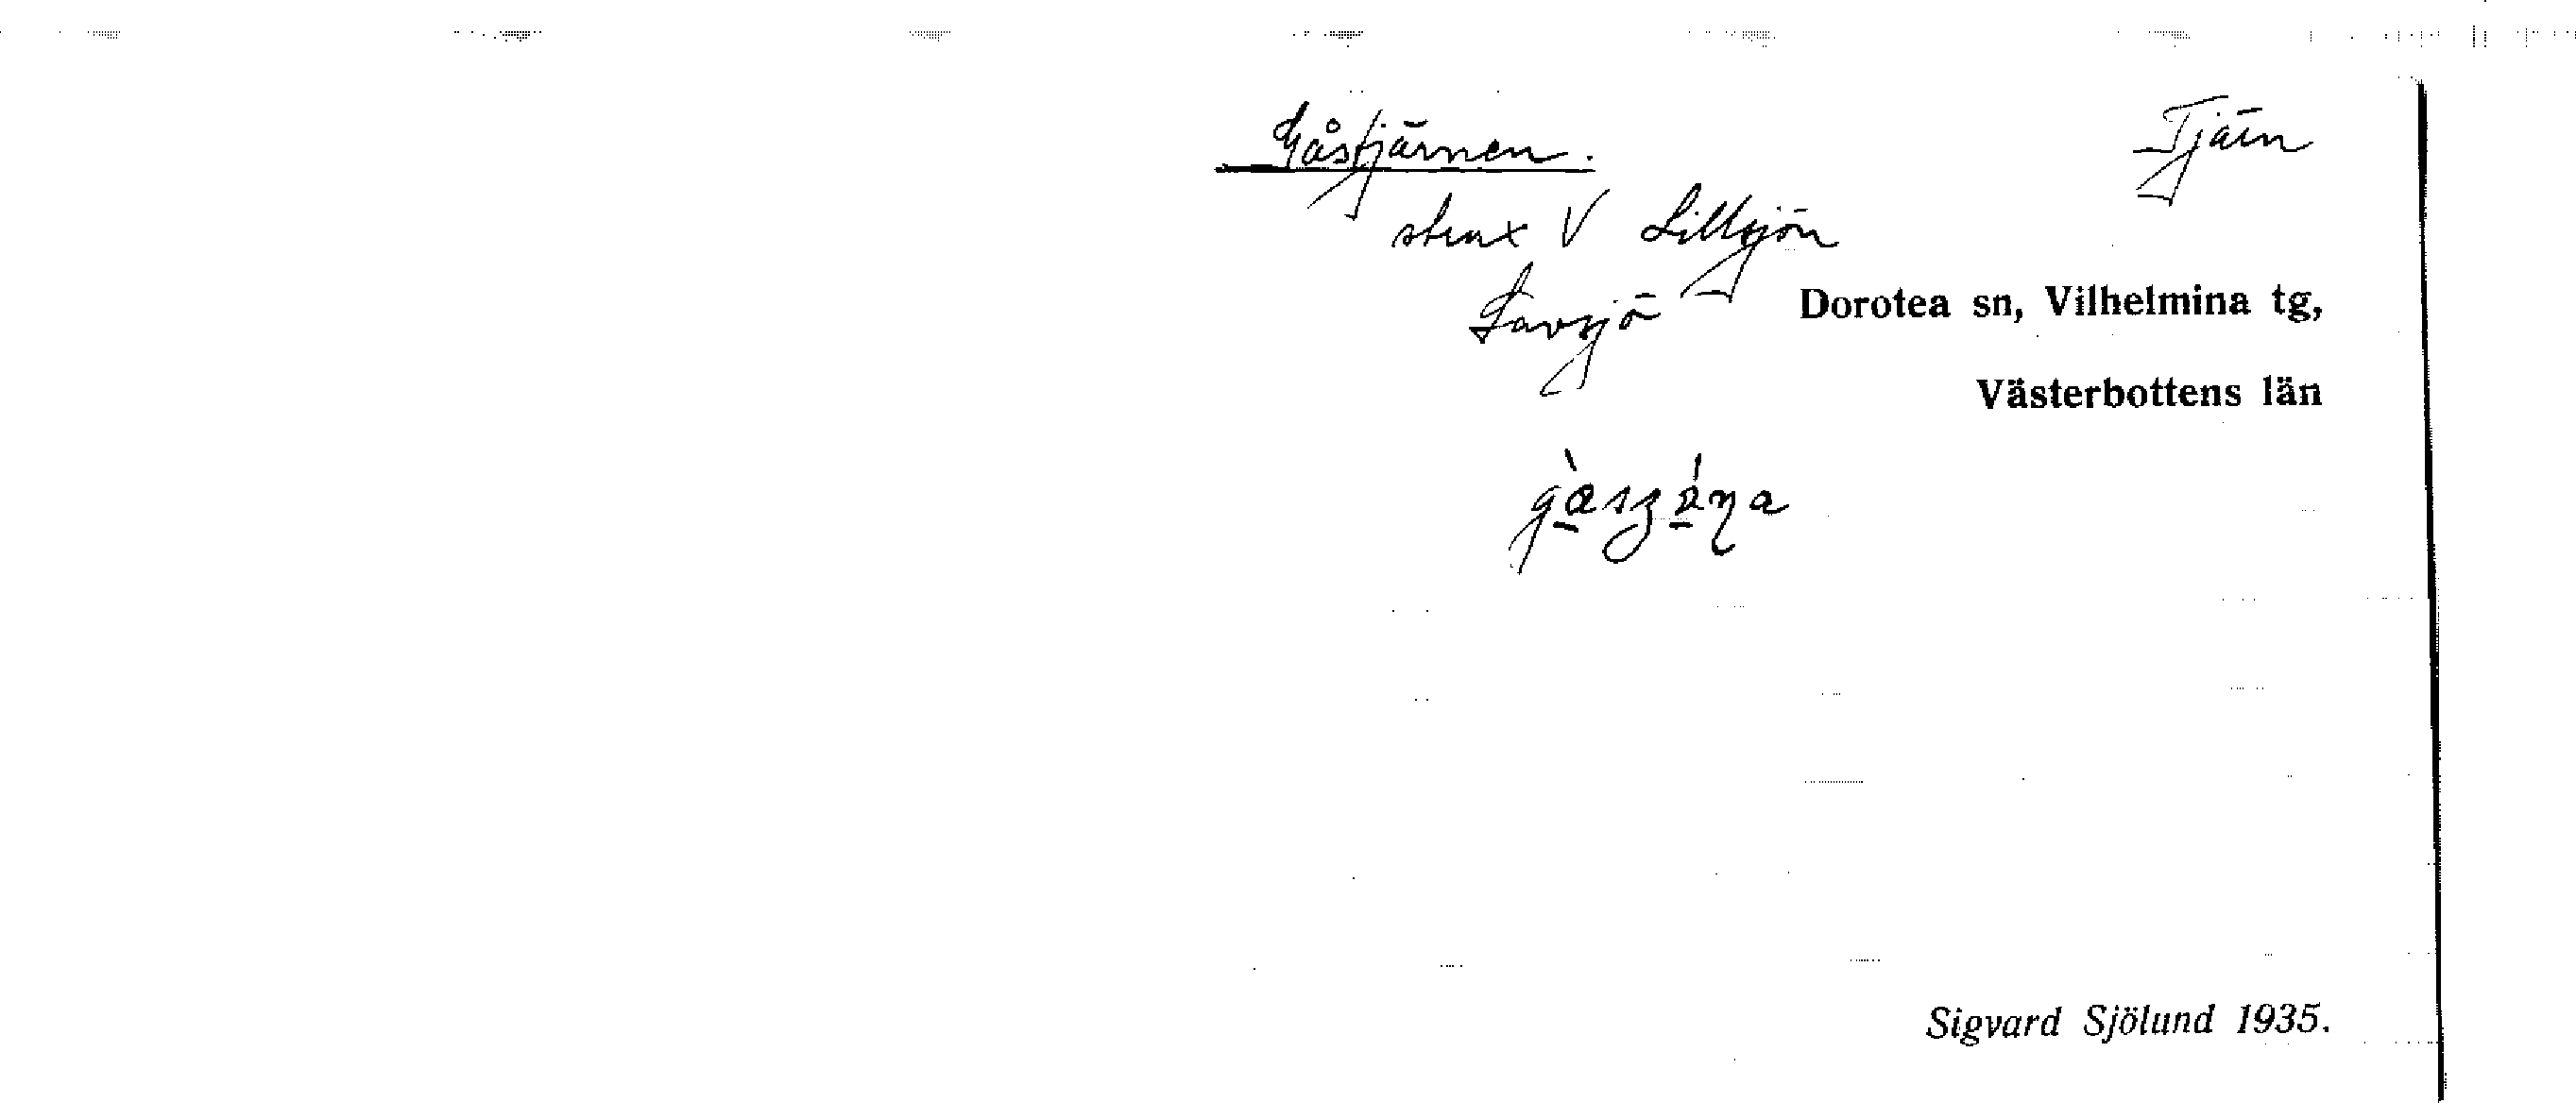 Gåstjärnen. Tjärn
strax V Lillsjön
Lavsjö Dorotea sn, Vilhelmina tg,
Västerbottens län
Sigvard Sjölund 1935.